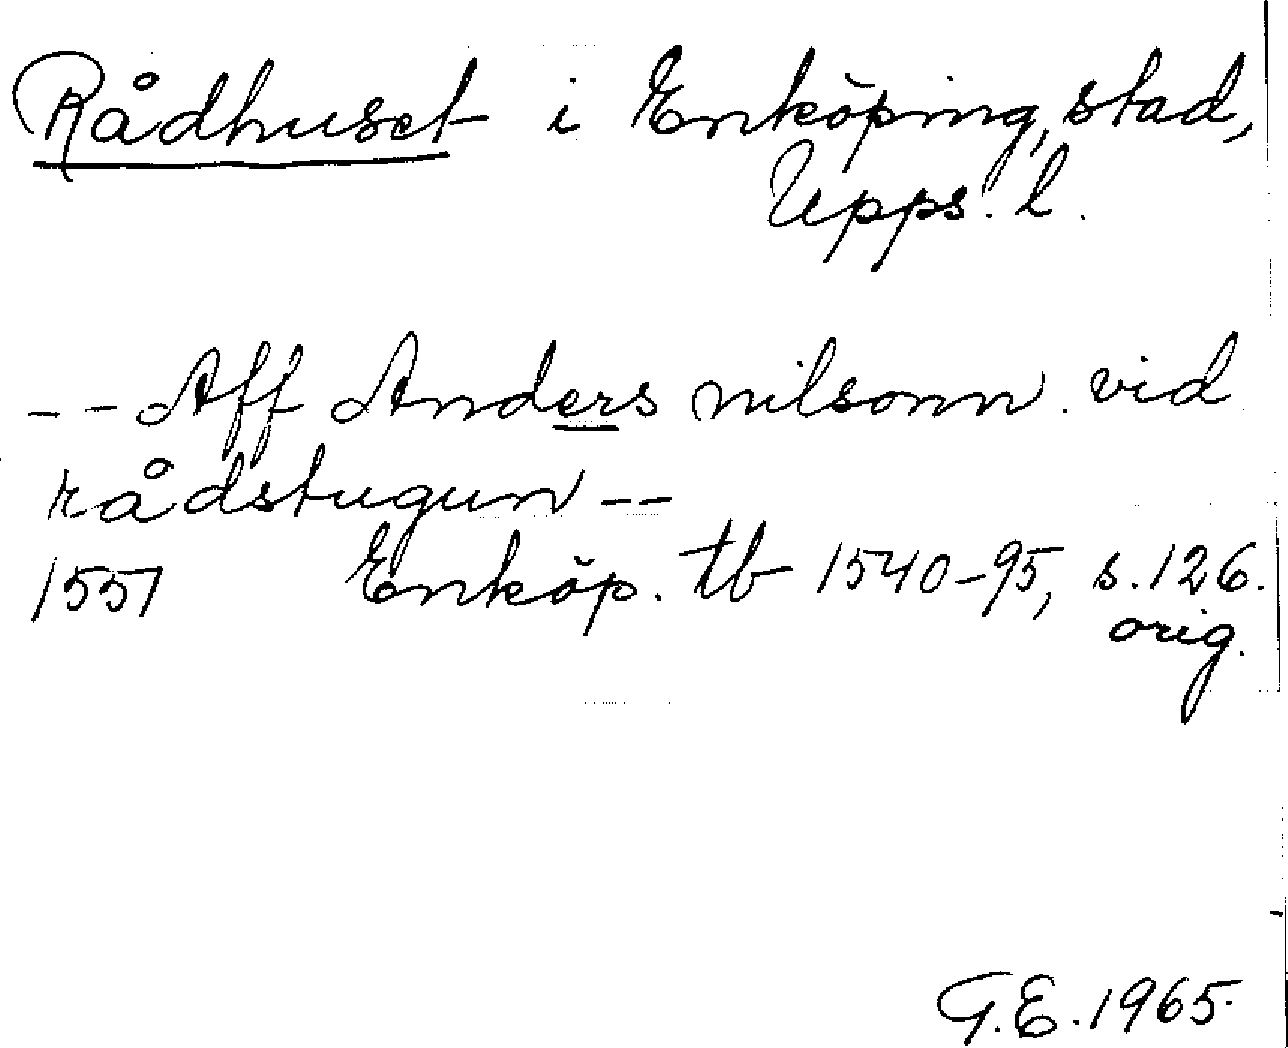 Rådhuset i Enköping, stad,
Upps. l.
-- Aff Anders nilsonn vid
rådstugun --
1557 Enköp. tb 1540-95, s. 126.
orig.
G.E. 1965.